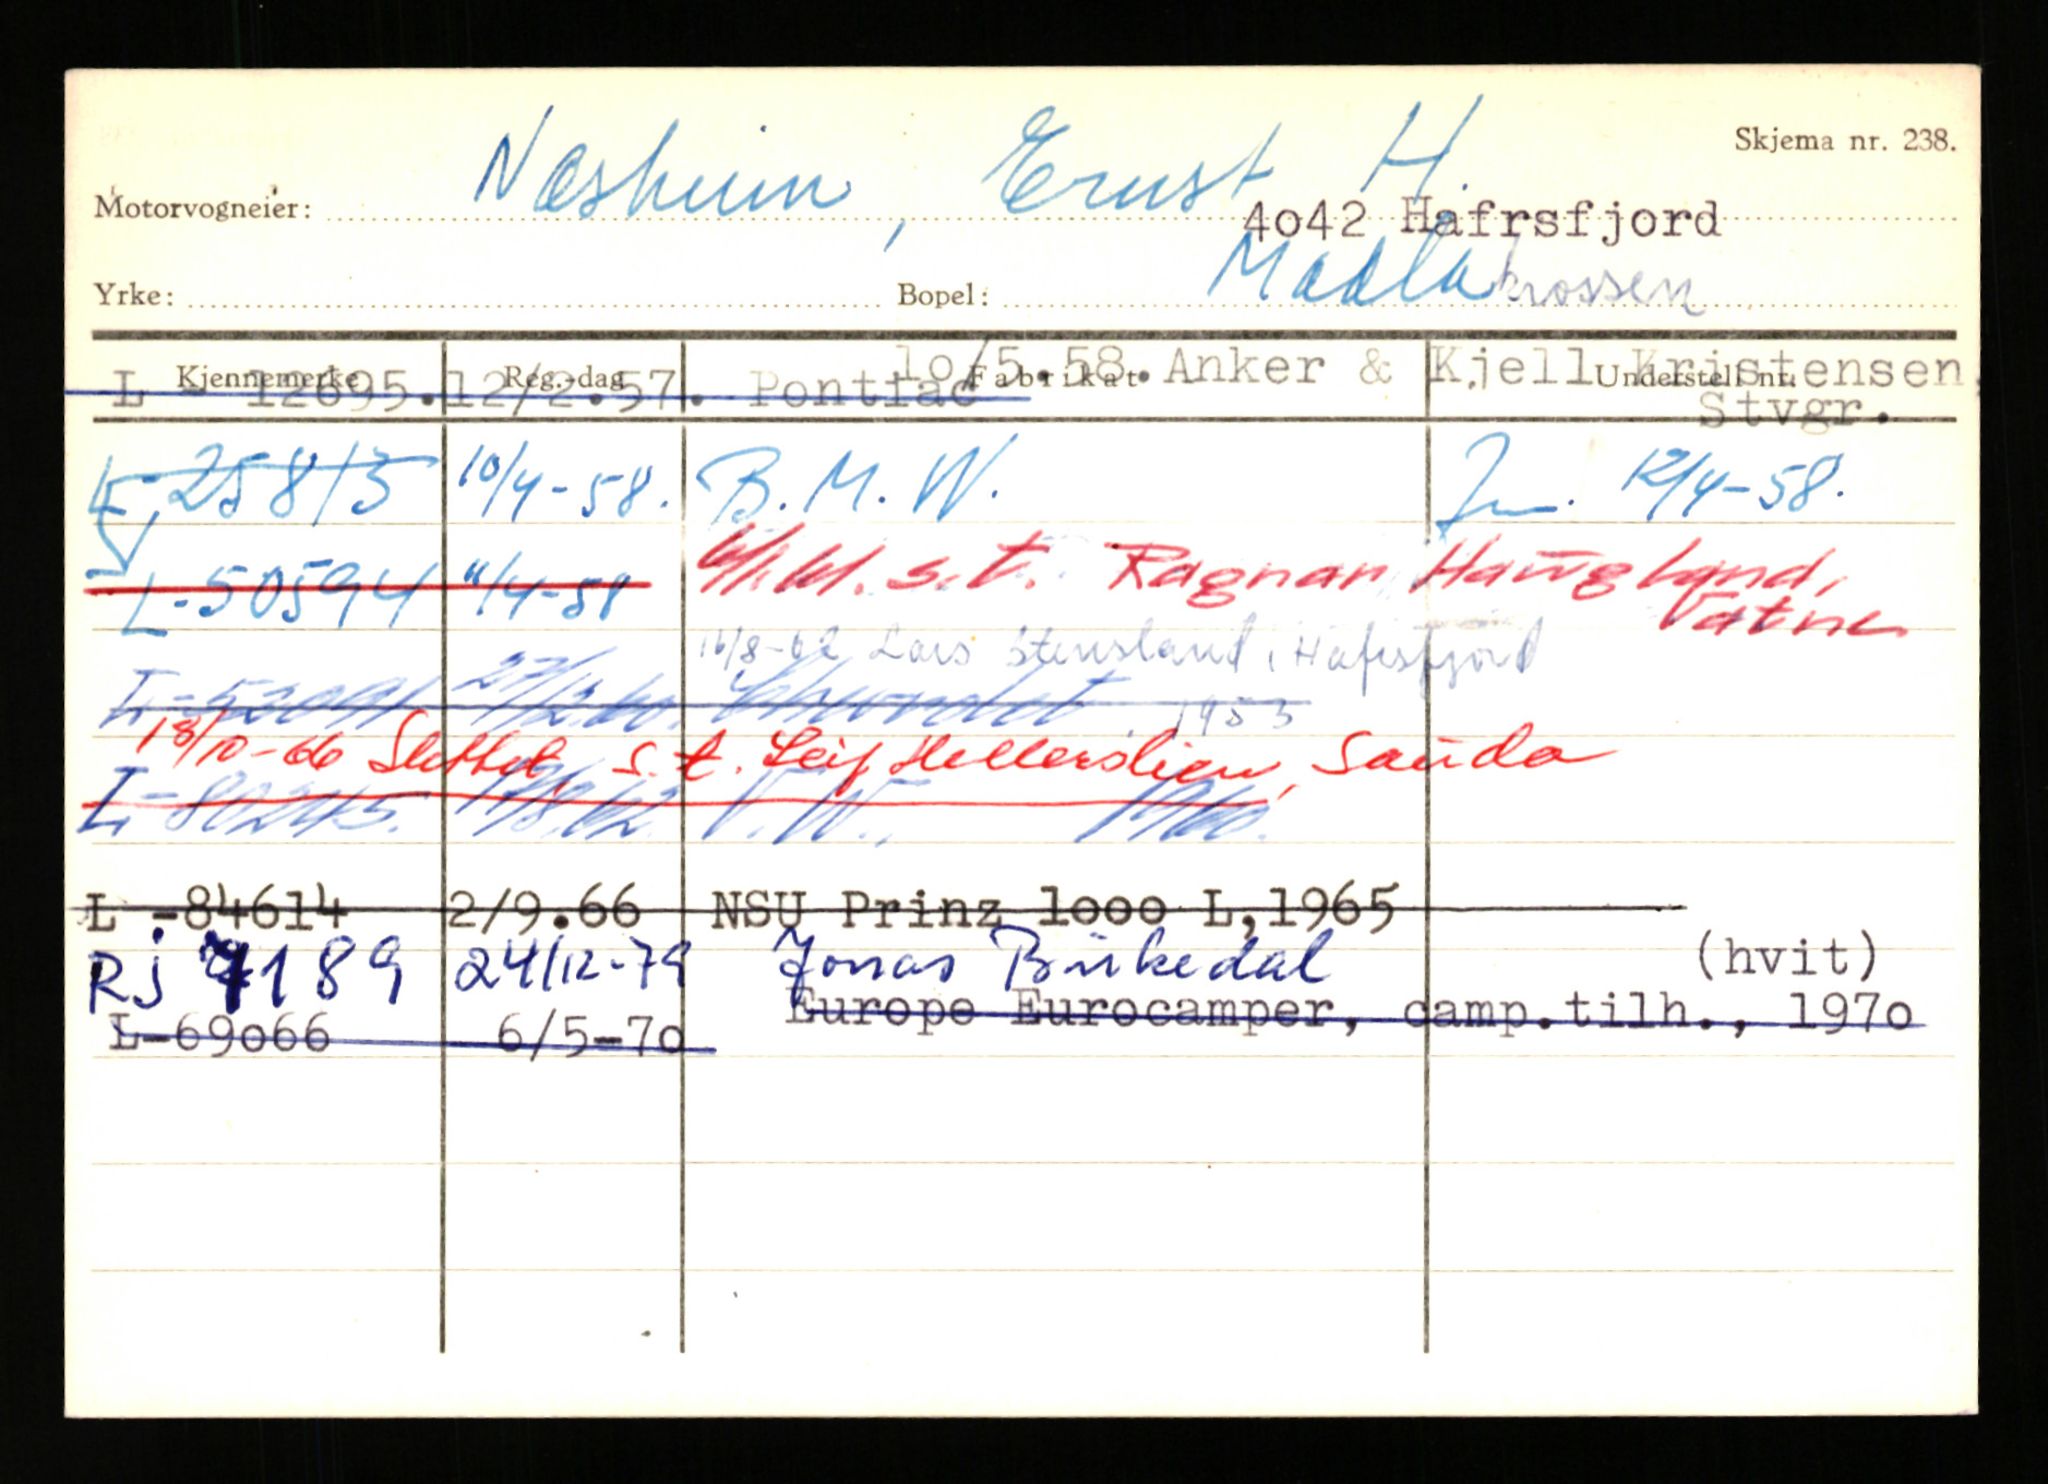 Skjema nr. 238.
Motorvogneier: Næsheim, Ernst H.
4042 Hafrsfjord
Yrke: Bopel: Madlakrossen
10/5.58. Anker & Kjell Kristensen,
Kjennemerke Reg.-dag Fabrikat Understell nr.
L 12695. 12/2.57. Pontiac Stvgr.
L 25813 10/4-58. B. M. W. 12/4-58.
s.t. Ragnar Haugland,
L-50594 11/4-58 Vatne
16/8-62 Lars Stensland, Hafrsfjord
27/12.60. Chevrolet 1953
18/10-66 Slettet, s.t. Leif Hellerslien, Sauda
L-80245. V.W., 1960.
L -84614 2/9.66 NSU Prinz 1000 L,1965
Rj 189 24/12-79 Jonas Birkedal (hvit)
Europe Eurocamper, camp.tilh., 1970
L-69066 6/5-70